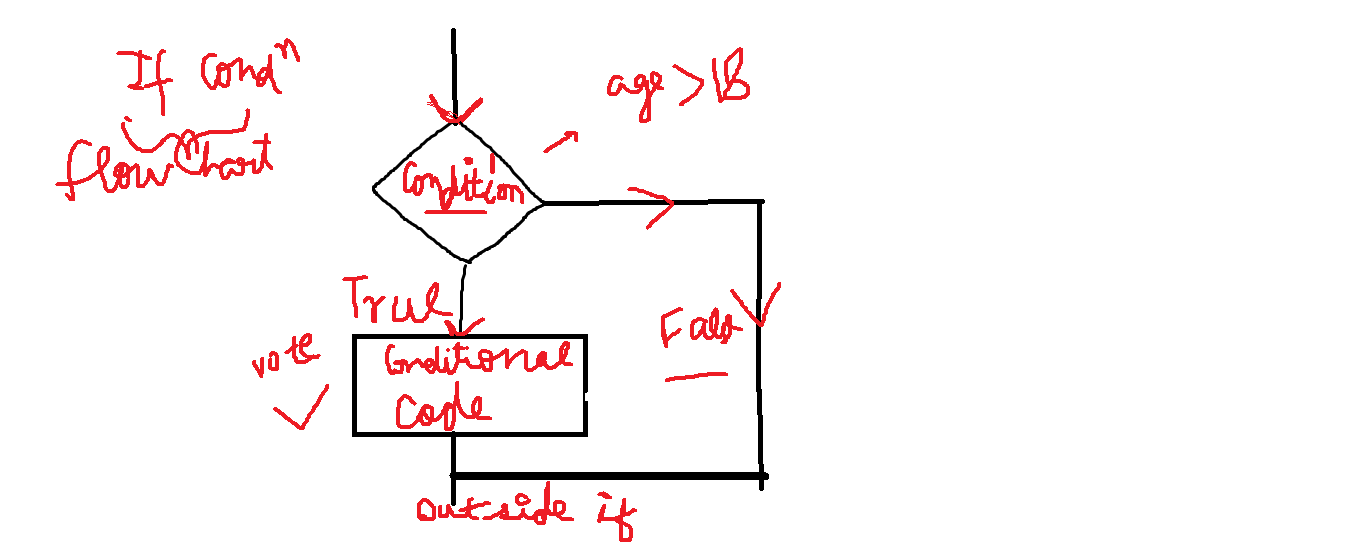 If Condⁿ
flow Chart
age > 18
Condition
True
False
vote
Conditional
Code
outside if